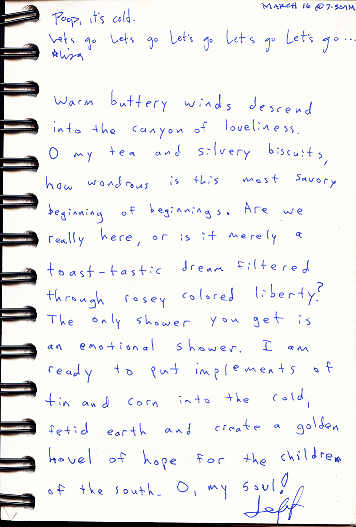 MARCH 16 @ 7:50AM
Poop, it's cold.
Let's go Let's go Let's go Let's go Let's go...
*Liza
Warm buttery winds descend
into the canyon of loveliness.
O my tea and silvery biscuits,
how wondrous is this most savory
beginning of beginnings. Are we
really here, or is it merely a
toast-tastic dream filtered
through rosey colored liberty?
The only shower you get is
an emotional shower. I am
ready to put implements of
tin and corn into the cold,
fetid earth and create a golden
hovel of hope for the children
of the south. O, my soul!
Jeff